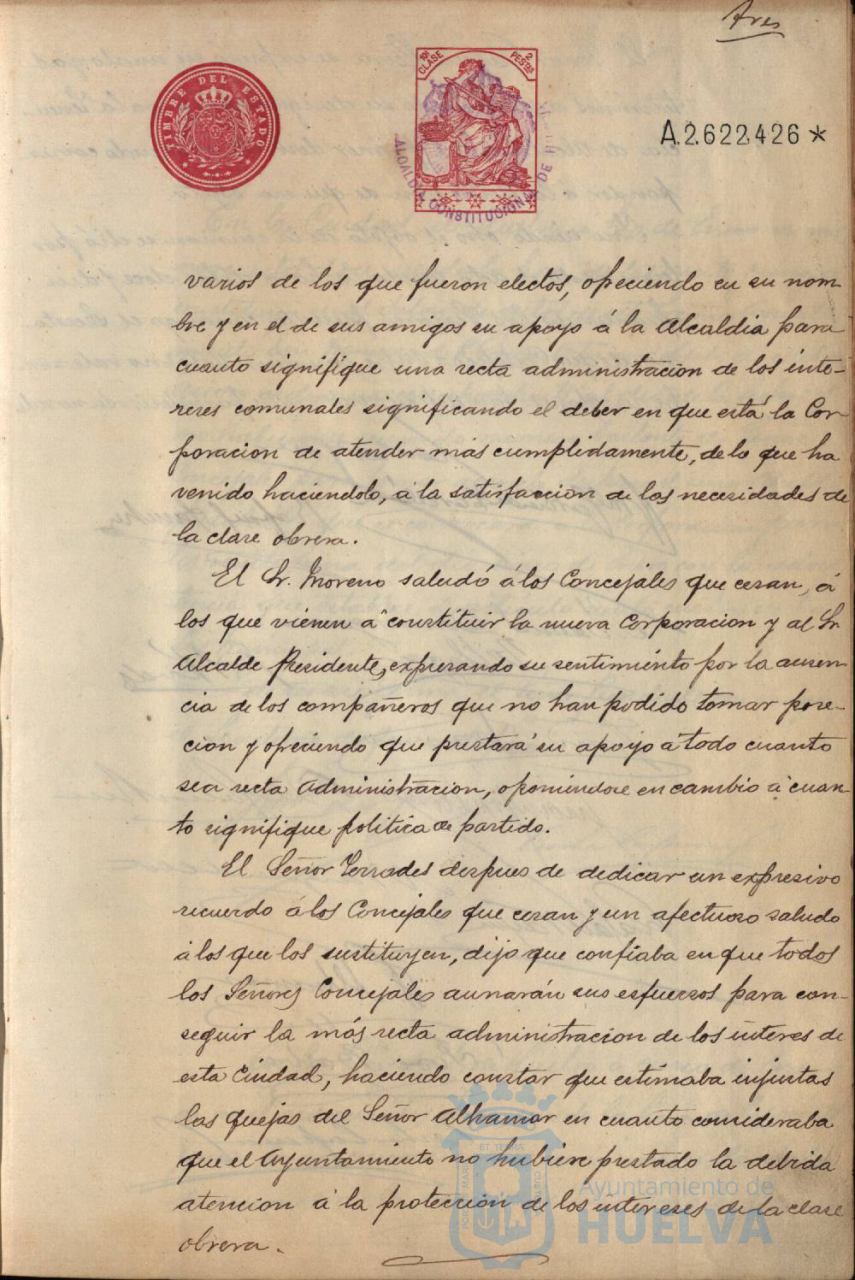 Tres
TIMBRE DEL ESTADO
10ª CLASE 2 PESETAS
ALCALDIA CONSTITUCIONAL DE
A.2.622.426*
varios de los que fueron electos, ofreciendo en su nom-
bre y en el de sus amigos su apoyo á la Alcaldia para
cuanto signifique una recta administracion de los inte-
reses comunales significando el deber en que está la Cor-
poracion de atender más cumplidamente, de lo que ha
venido haciendolo, á la satisfaccion de las necesidades de
la clase obrera.
El Sr. Moreno saludó á los Concejales que cesan, á
los que vienen á constituir la nueva Corporacion y al Sr.
Alcalde Presidente, expresando su sentimiento por la ausen-
cia de los compañeros que no han podido tomar pose-
cion y ofreciendo que prestará su apoyo á todo cuanto
sea recta administracion, oponiendose en cambio á cuan-
to signifique politica de partido.
El Señor Terrades despues de dedicar un expresivo
recuerdo á los Concejales que cesan y un afectuoso saludo
á los que los sustituyen, dijo que confiaba en que todos
los Señores Concejales aunarán sus esfuerzos para con-
seguir la más recta administracion de los interes de
esta Ciudad, haciendo constar que estimaba injustas
las quejas del Señor Alhamar en cuanto consideraba
que el Ayuntamiento no hubiere prestado la debida
atencion á la proteccion de los intereses de la clase
obrera.
Ayuntamiento de
HUELVA